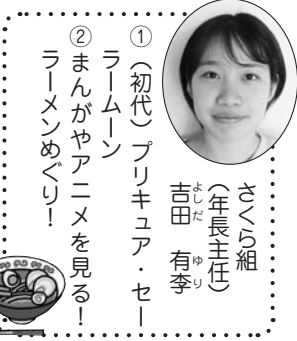 さくら組
(年長主任)
よしだ ゆり
吉田 有李
①(初代)プリキュア・セー
ラームーン
②まんがやアニメを見る!
ラーメンめぐり!